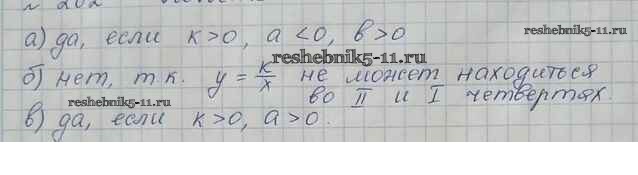 № 202
а) да, если к>0, а<0, в>0
reshebnik5-11.ru
б) нет, т.к. y = к/x не может находиться
reshebnik5-11.ru
во II и I четвертях.
в) да, если к>0, а>0.